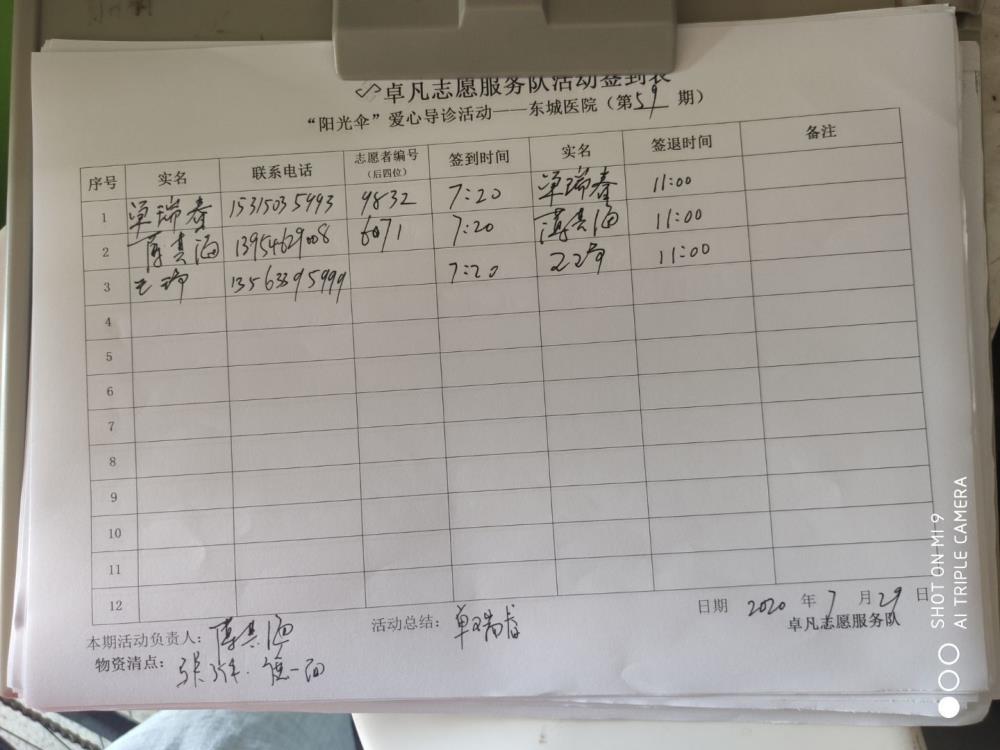 卓凡志愿服务队活动签到表
“阳光伞”爱心导诊活动——东城医院（第59期）
序号 实名 联系电话 志愿者编号（后四位） 签到时间 实名 签退时间 备注
1 单瑞春 15315035493 9832 7:20 单瑞春 11:00
2 薄其海 13954629008 6071 7:20 薄其海 11:00
3 13563395999 7:20 11:00
4
5
6
7
8
9
10
11
12
本期活动负责人：薄其海 活动总结：单瑞春 日期 2020 年 7 月 29 日
物资清点： 卓凡志愿服务队
SHOT ON MI 9
AI TRIPLE CAMERA